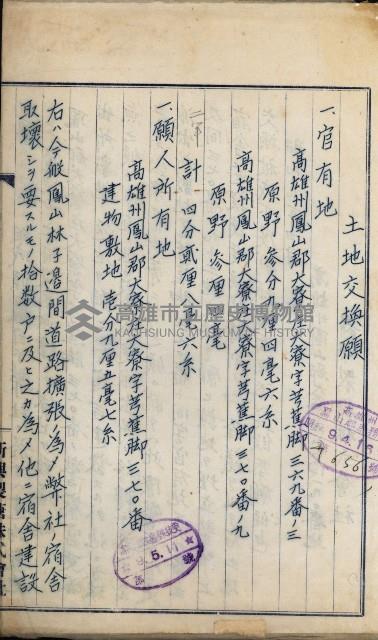 土地交換願
一、官有地
高雄州鳳山郡大寮庄大寮字芎蕉脚三六九番ノ三
原野 參分九厘四毫六糸
高雄州鳳山郡大寮庄大寮字芎蕉脚三七〇番ノ九
原野 參厘 毫
計 四分貳厘八毫六糸
一、願人所有地
高雄州鳳山郡大寮庄大寮字芎蕉脚三七〇番
建物敷地 壱分九厘五毫七糸
右ハ今般鳳山林子邉間道路擴張ノ為メ弊社ノ宿舍
取壞シヲ要スルモノ拾数户ニ及ヒ之カ為メ他ニ宿舍建設
高雄市立歷史博物館
KAOHSIUNG MUSEUM OF HISTORY
高雄州
9.4.16
656
5.11
新興製糖株式會社